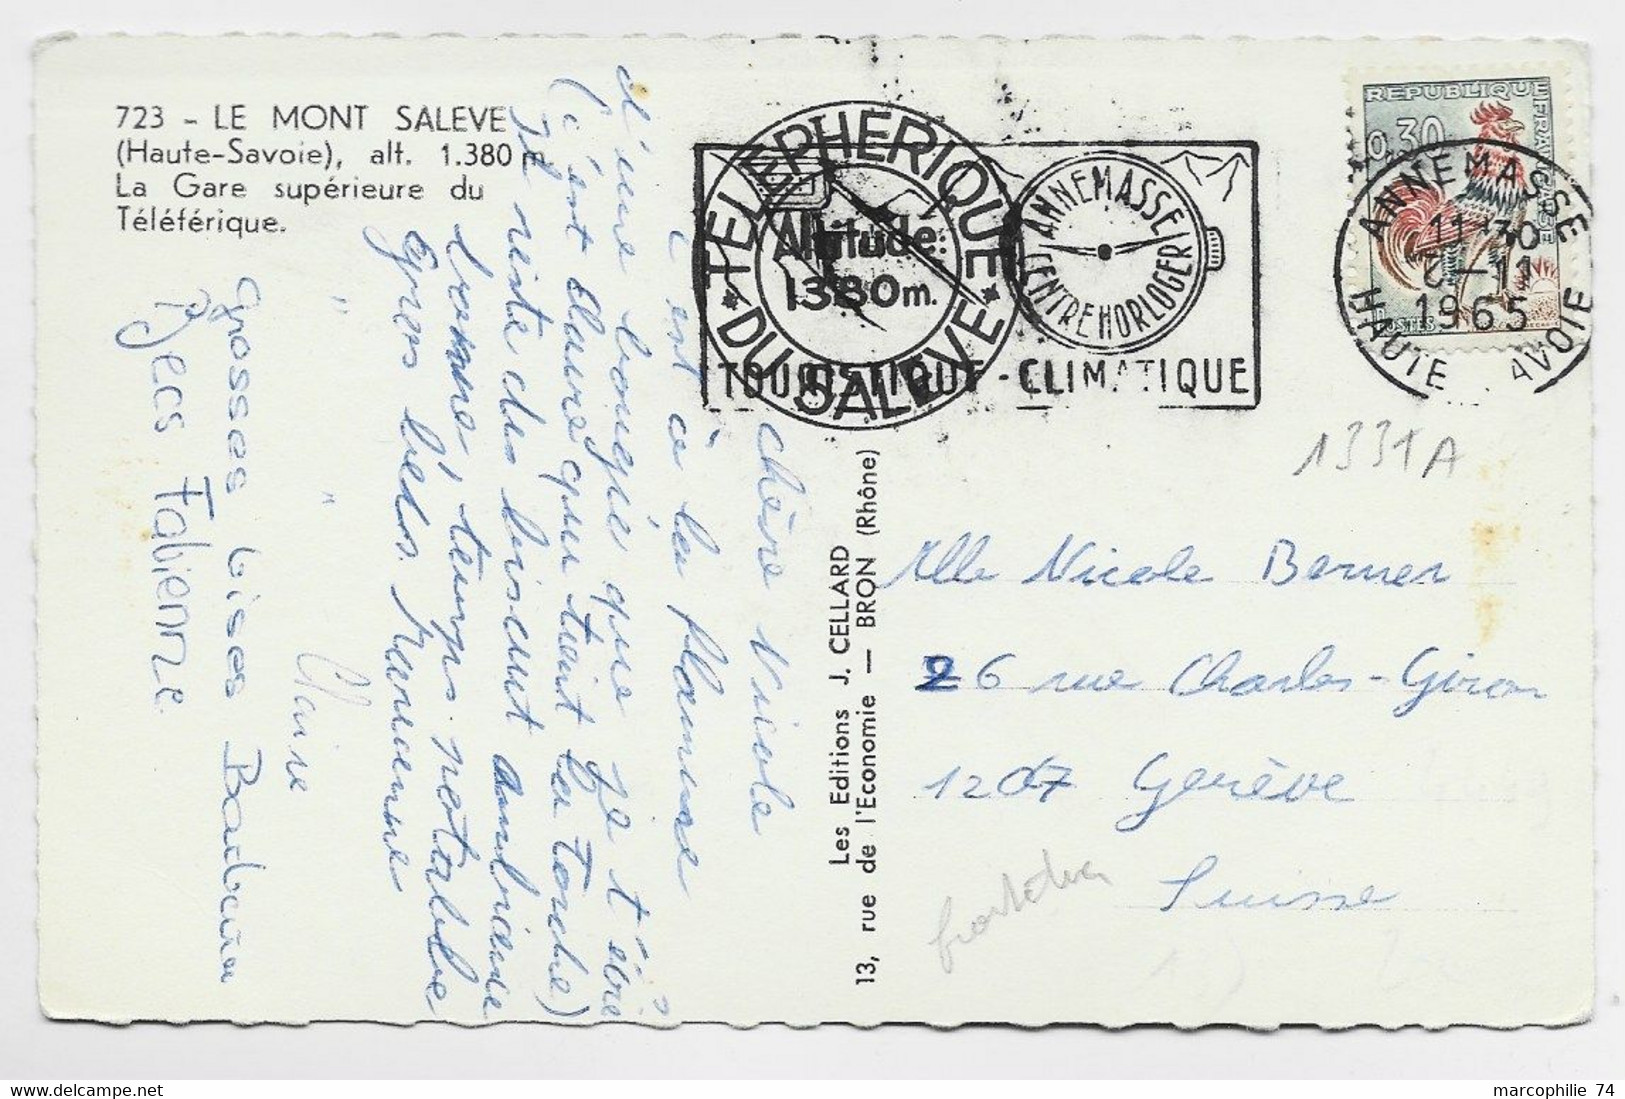 723 - LE MONT SALEVE
(Haute-Savoie), alt. 1.380 m
La Gare supérieure du
Téléférique.
TELEPHERIQUE
* DU SALEVE *
Altitude:
1380 m.
ANNEMASSE
CENTRE HORLOGER
TOURISTIQUE - CLIMATIQUE
REPUBLIQUE FRANCAISE
0,30
POSTES
ANNEMASSE
11 H 30
-11
1965
HAUTE SAVOIE
1331A
chère Nicole
C'est à la flamme
d'une bougie que je t'écris
(c'est Claire qui tient la torche)
Le reste des lisent ambiance
bonne, temps potable
Gros bécs. Marianne
" " Claire
Grosses bises Barbara
Becs Fabienne
Les Editions J. CELLARD
13, rue de l'Economie — BRON (Rhône)
Mlle Nicole Berner
26 rue Charles-Giron
1207 Genève
Suisse
www.delcampe.net
marcophilie 74